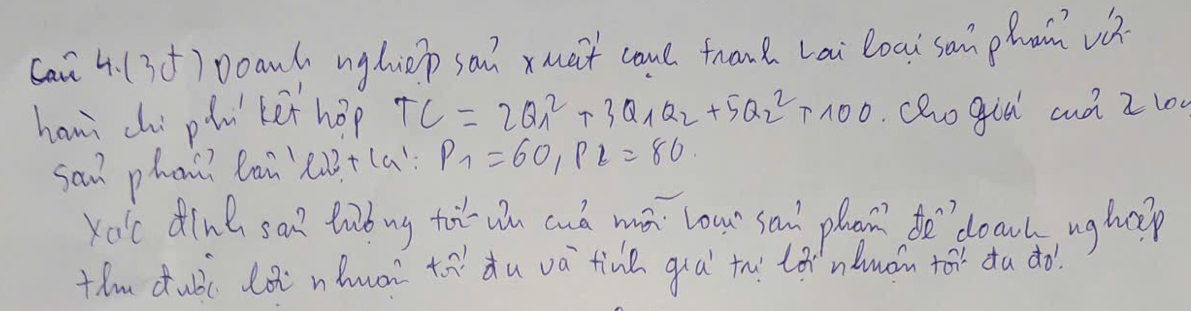 Câu 4.(3đ) Doanh nghiệp sản xuất cạnh tranh hai loại sản phẩm với
hàm chi phí kết hợp TC = 2Q1² + 3Q1Q2 + 5Q2² + 100. Cho giá của 2 loạ
sản phẩm lần lượt là: P1 = 60, P2 = 80.
Xác định sản lượng tối ưu của mỗi loại sản phẩm để doanh nghiệp
thu được lợi nhuận tối đa và tính giá trị lợi nhuận tối đa đó.